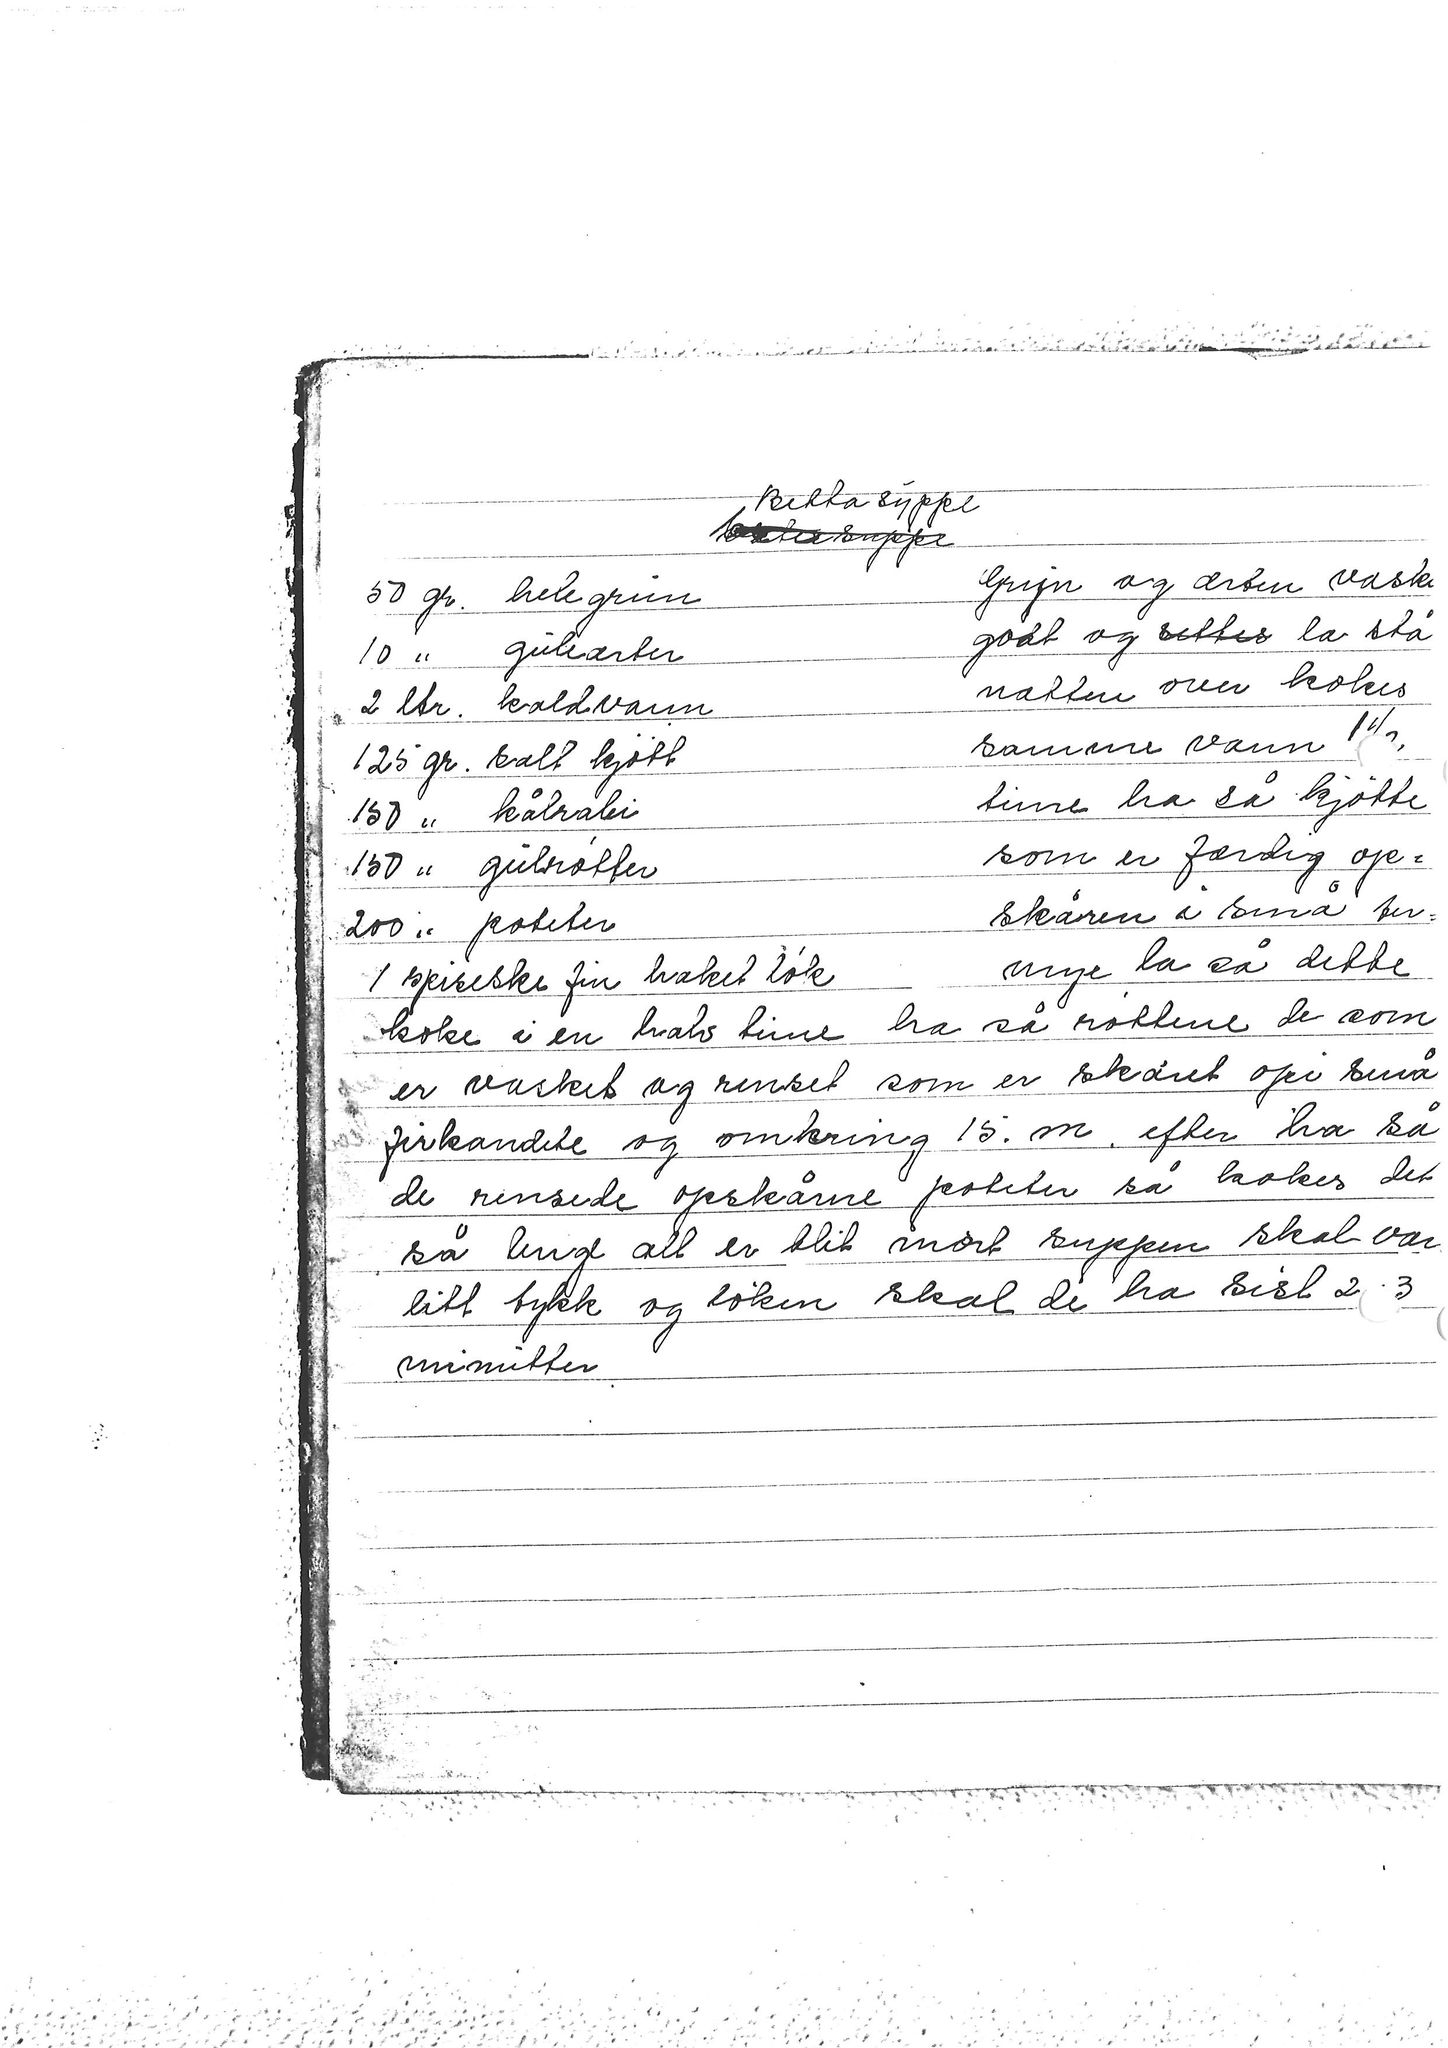 Betta suppe
50 gr. hele grun
10 " guleærter
2 ltr. kaldvann
125 gr. salt kjött
150 " kålrabi
150 " gulrötter
200 " poteter
1 spiseske fin haket lök
Gryn og ærten vaske
godt og settes la stå
natten over kokes
samme vann 1 1/2
time ha så kjötte
som er færdig op=
skåren i små ter=
nnge la så dette
koke i en halv time ha så röttene de som
er vasket og renset som er skåret opi små
firkandete og omkring 15. m. efter ha så
de rensede opskårne poteter så kokes det
så lengе alt er blit mört suppen skal vær
litt tykk og löken skal de ha sist 2 3
minutter